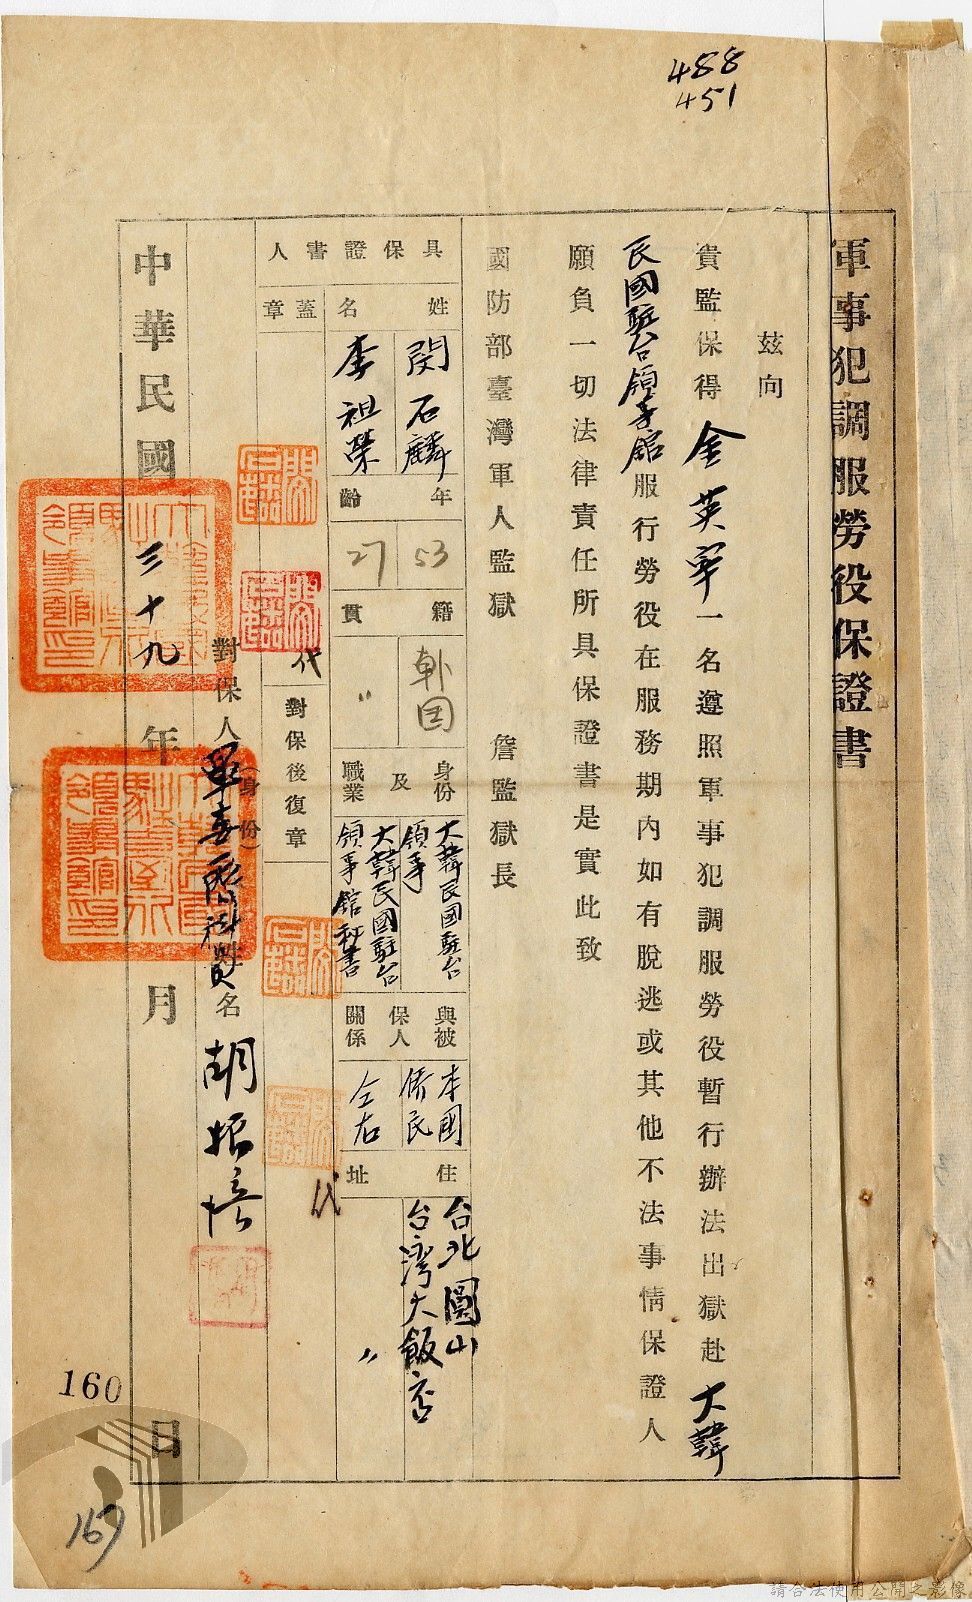 488
451
軍事犯調服勞役保證書
茲向
貴監保得金英宰一名遵照軍事犯調服勞役暫行辦法出獄赴大韓
民國駐台領事館服行勞役在服務期內如有脫逃或其他不法事情保證人
願負一切法律責任所具保證書是實此致
國防部臺灣軍人監獄 詹監獄長
具保證書人
姓名
閔石麟
李祖榮
年齡
53
27
籍貫
韓国
〃
身份及職業
大韓民國駐台領事
大韓民國駐台領事館秘書
與被保人關係
本國僑民
仝右
住址
台北圓山台灣大飯店
〃
蓋章
代
對保後復章
代
對保人(身份)
姓名
胡振
中華民國三十九年 月 日
160
167
請合法使用公開之影像